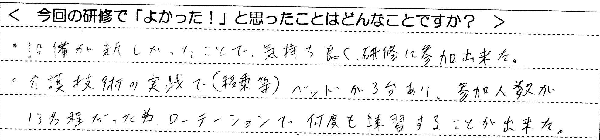 < 今回の研修で「よかった！」と思ったことはどんなことですか？ >
・設備が新しかったことで、気持ち良く研修に参加出来た。
・介護技術の実践で(移乗等)ベットが3台あり、参加人数が
13名程だった為、ローテーションで何度も練習することが出来た。